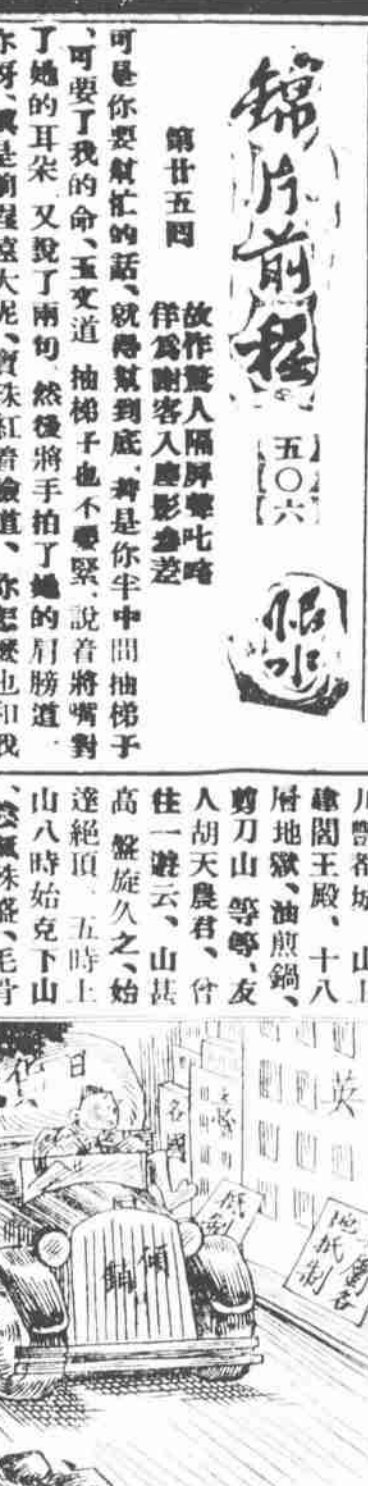 錦片前程
五〇六
恨水
第廿五回
故作驚人隔屏聲叱咤
佯爲謝客入座影參差
可是你要幫忙的話、就得幫到底、若是你半中間抽梯子
、可要了我的命、玉文道 抽梯子也不要緊、說着將嘴對
了她的耳朵 又說了兩句 然後將手拍了她的肩膀道、
你呀、眞是前程遠大呢、寶珠紅着臉道、你怎麼也和我
川酆都城 山上
建閻王殿、十八
層地獄、油煎鍋、
剪刀山 等等、友
人胡天農君、曾
往一遊云、山甚
高 盤旋久之、始
達絕頂、五時上
山八時始克下山
殊盛、毛骨
英
各國
日貨
抵制
傾銷